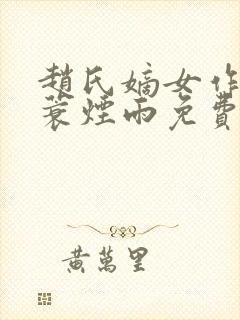 趙氏嫡女作
蓑煙雨免費
黃萬里